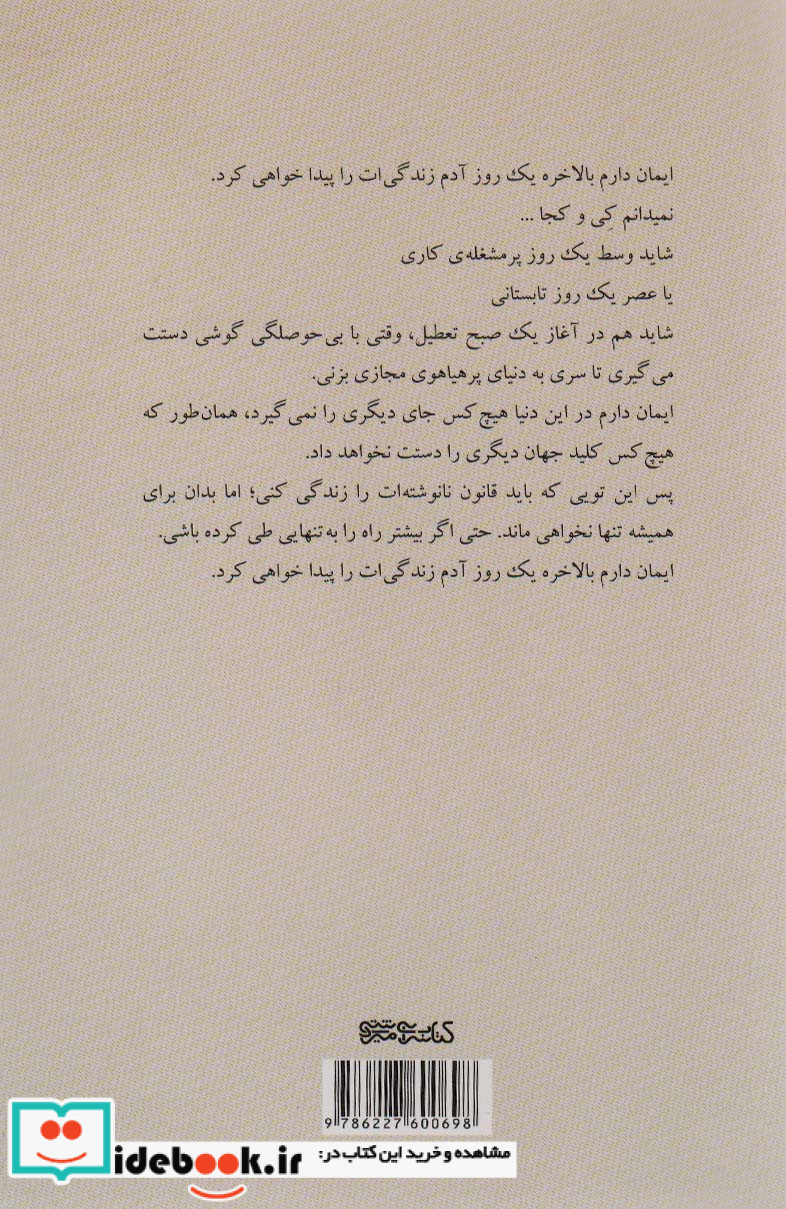 ایمان دارم بالاخره یک روز آدم زندگی‌ات را پیدا خواهی کرد.
نمیدانم کِی و کجا ...
شاید وسط یک روز پرمشغله‌ی کاری
یا عصر یک روز تابستانی
شاید هم در آغاز یک صبح تعطیل، وقتی با بی‌حوصلگی گوشی دستت
می‌گیری تا سری به دنیای پرهیاهوی مجازی بزنی.
ایمان دارم در این دنیا هیچ‌کس جای دیگری را نمی‌گیرد، همان‌طور که
هیچ‌کس کلید جهان دیگری را دستت نخواهد داد.
پس این تویی که باید قانون نانوشته‌ات را زندگی کنی؛ اما بدان برای
همیشه تنها نخواهی ماند. حتی اگر بیشتر راه را به‌تنهایی طی کرده باشی.
ایمان دارم بالاخره یک روز آدم زندگی‌ات را پیدا خواهی کرد.
9 786227 600698
مشاهده و خرید این کتاب در:
idebook.ir